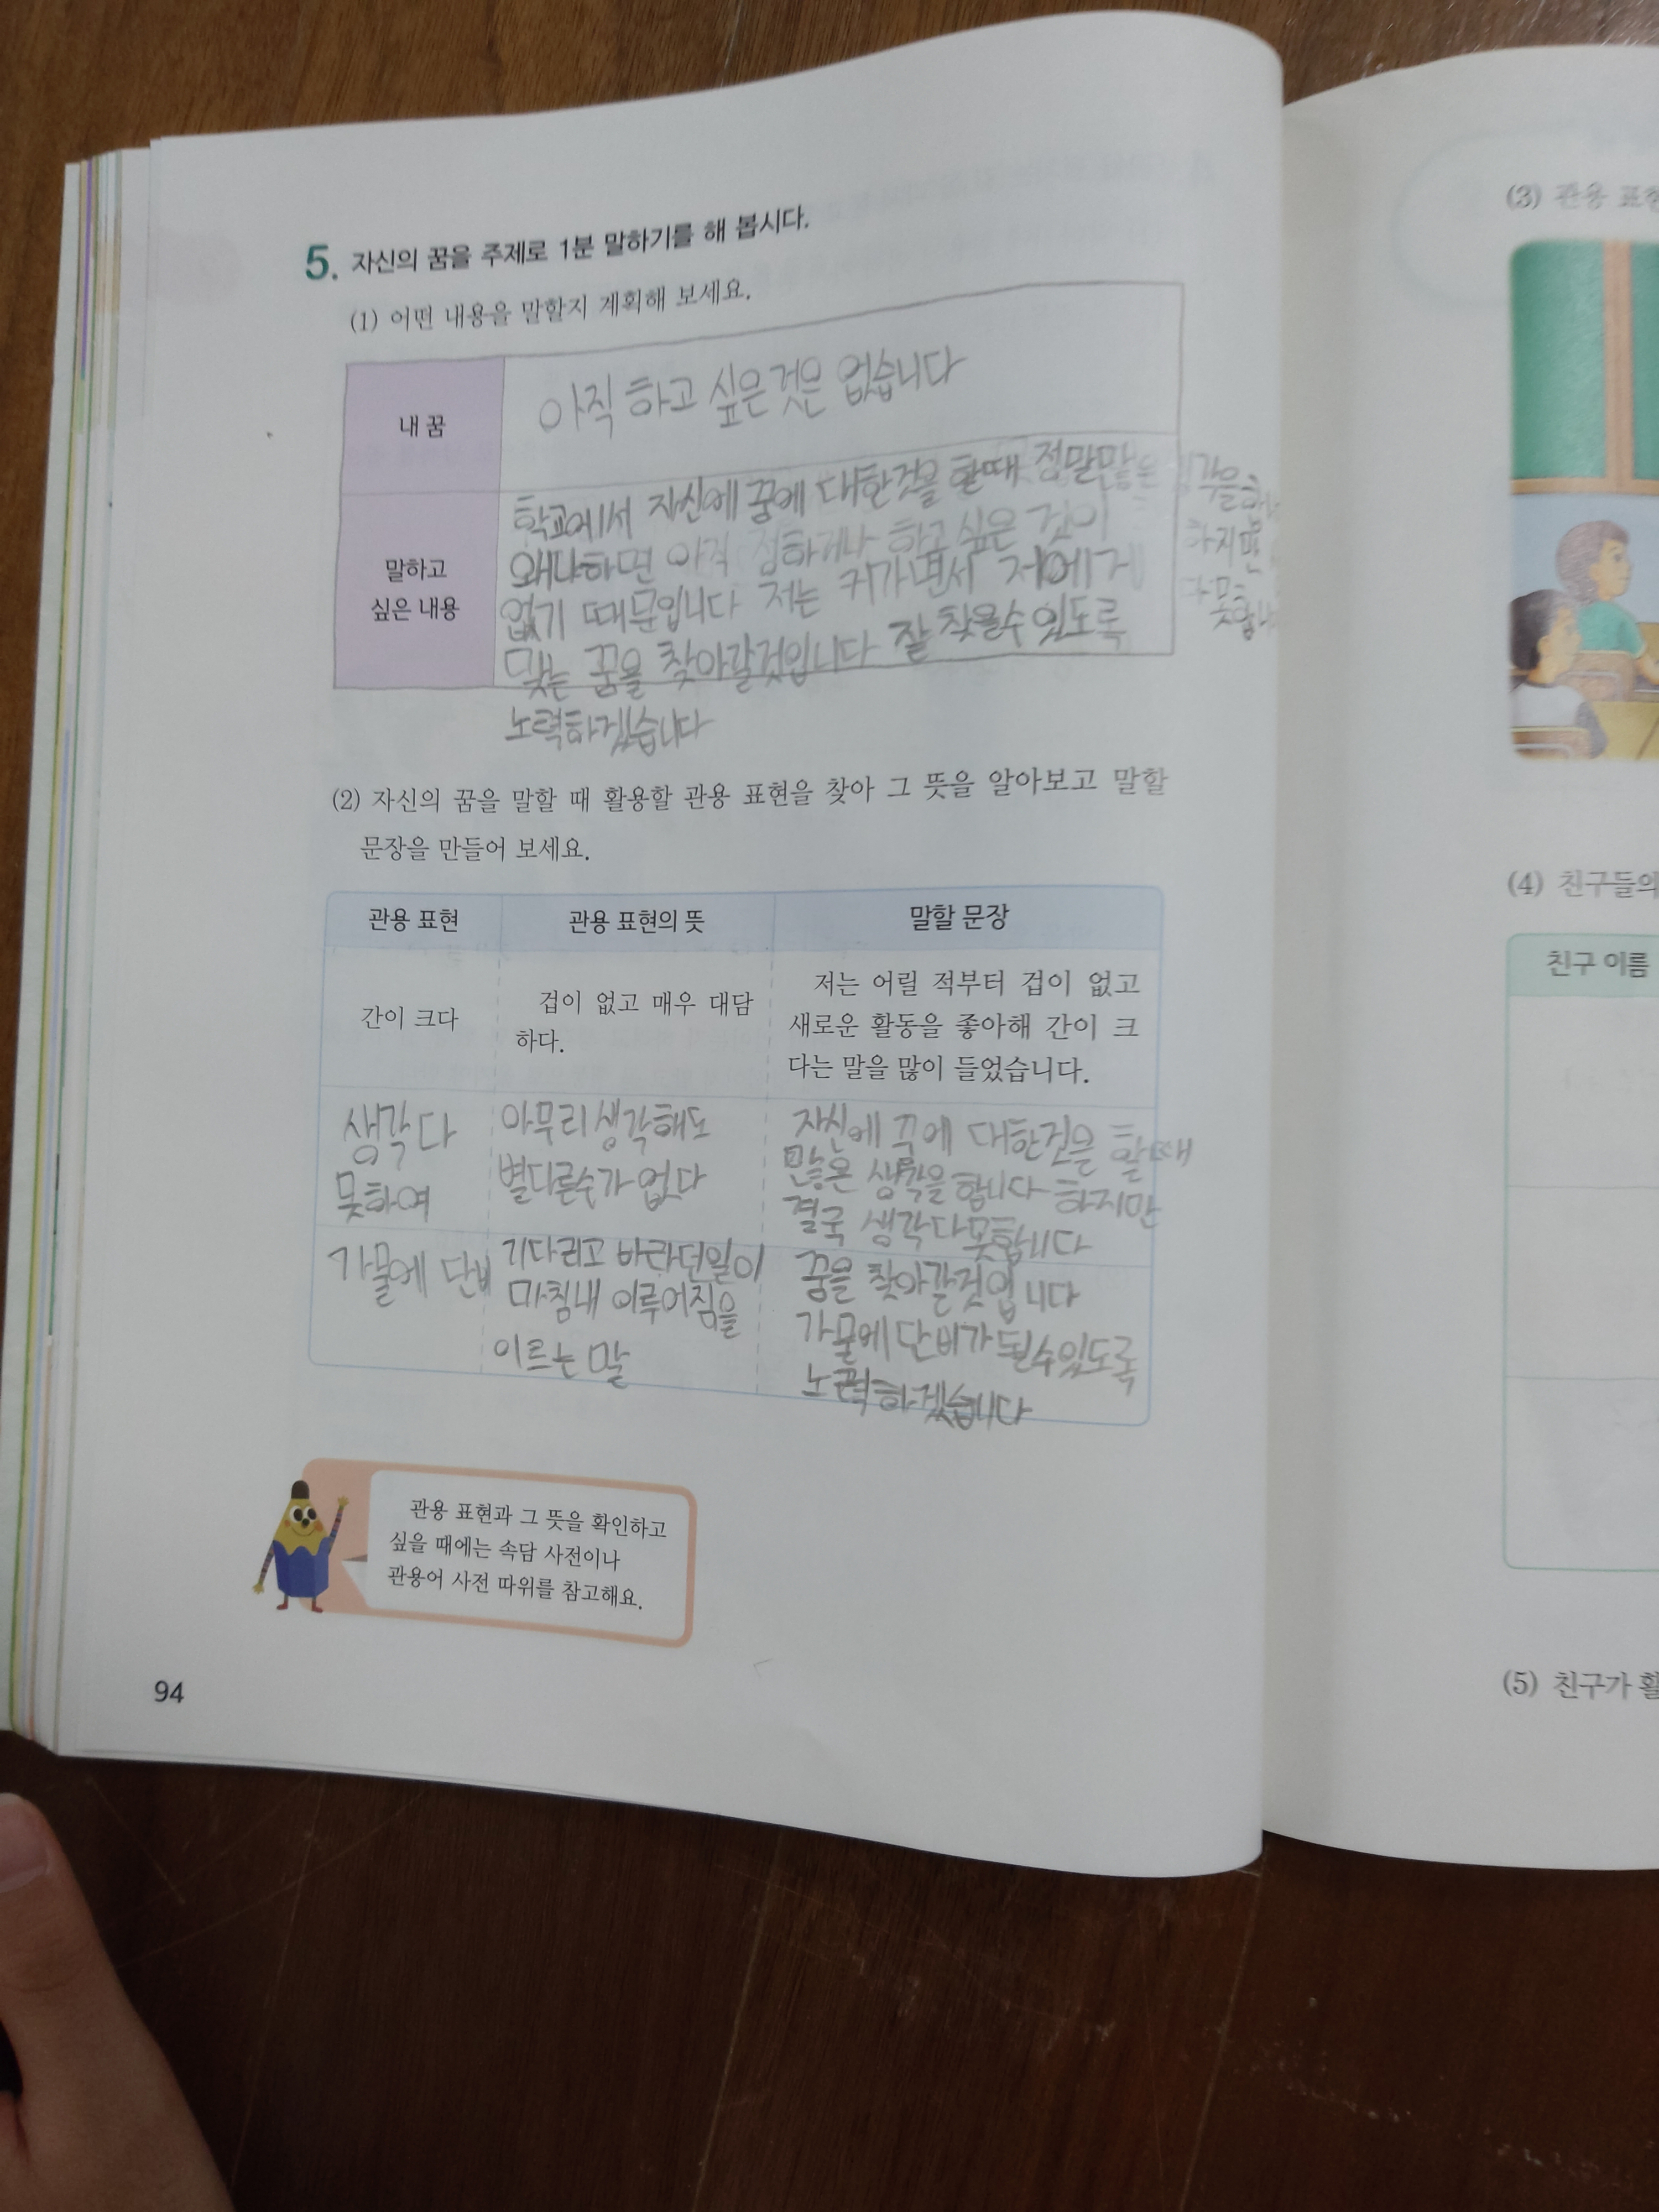 5. 자신의 꿈을 주제로 1분 말하기를 해 봅시다.
(1) 어떤 내용을 말할지 계획해 보세요.
내 꿈
아직 하고 싶은것은 없습니다
말하고
싶은 내용
학교에서 자신에 꿈에 대한것을 할때 정말많은
하지만
왜냐하면 아직 정하거나 하고싶은 것이
없기 때문입니다 저는 커가면서 저에게
맞는 꿈을 찾아갈것입니다 잘 찾을수있도록
노력하겠습니다
(2) 자신의 꿈을 말할 때 활용할 관용 표현을 찾아 그 뜻을 알아보고 말할
문장을 만들어 보세요.
관용 표현 관용 표현의 뜻 말할 문장
간이 크다
겁이 없고 매우 대담
하다.
저는 어릴 적부터 겁이 없고
새로운 활동을 좋아해 간이 크
다는 말을 많이 들었습니다.
생각다
못하여
아무리생각해도
별다른수가 없다
자신에 꿈에 대한것을 할때
많은 생각을합니다 하지만
결국 생각다못합니다
가물에 단비
기다리고 바라던일이
마침내 이루어짐을
이르는 말
꿈을 찾아갈것입니다
가물에단비가될수있도록
노력하겠습니다
관용 표현과 그 뜻을 확인하고
싶을 때에는 속담 사전이나
관용어 사전 따위를 참고해요.
94
(3) 관용 표현
(4) 친구들의
친구 이름
(5) 친구가 활